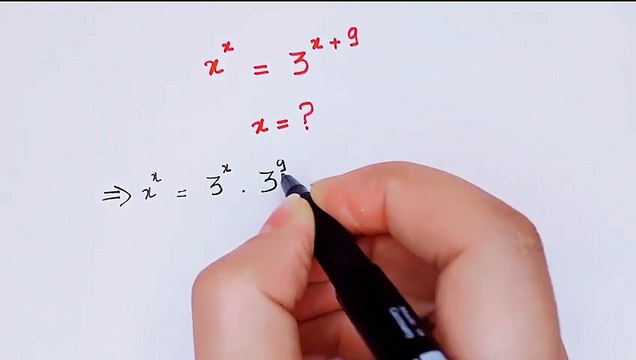 x^x = 3^{x+9}
x = ?
⇒ x^x = 3^x . 3^9